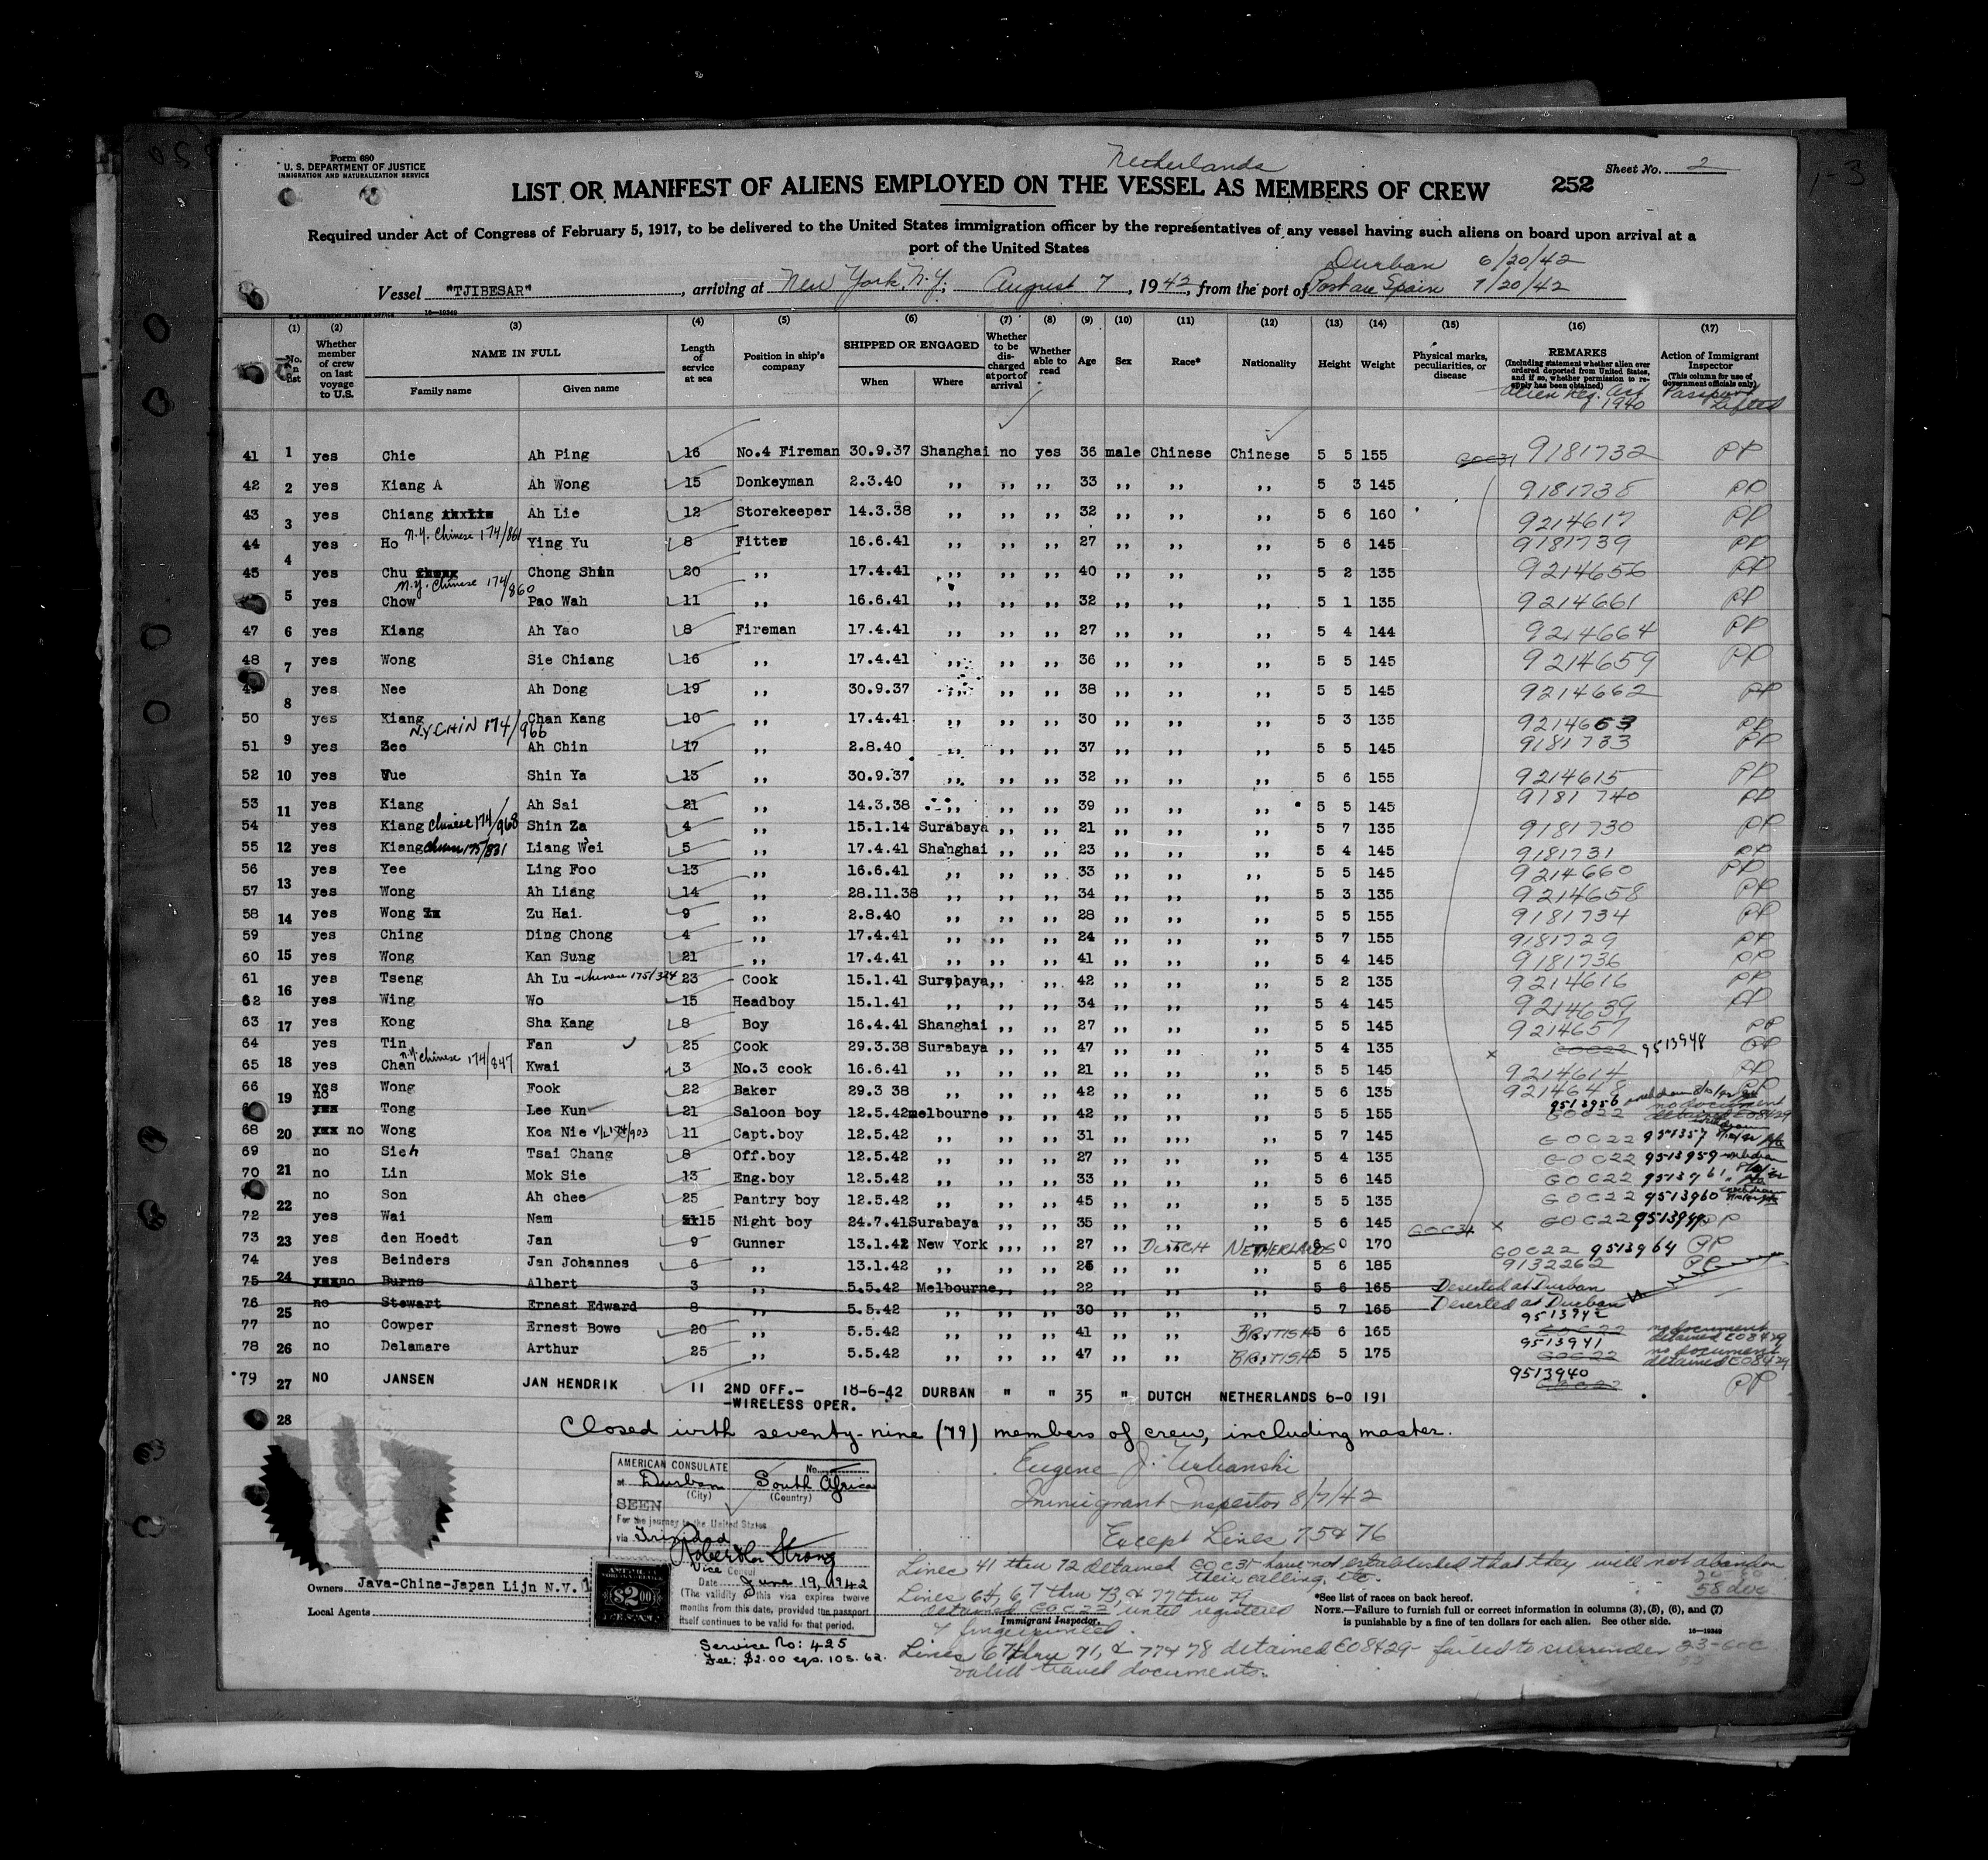 Form 680
U. S. DEPARTMENT OF JUSTICE
IMMIGRATION AND NATURALIZATION SERVICE
Netherlands
Sheet No. 2
LIST OR MANIFEST OF ALIENS EMPLOYED ON THE VESSEL AS MEMBERS OF CREW 252
Required under Act of Congress of February 5, 1917, to be delivered to the United States immigration officer by the representatives of any vessel having such aliens on board upon arrival at a
port of the United States
Durban 6/20/42
Vessel "TJIBESAR", arriving at New York, N.Y., August 7, 1942, from the port of Port au Spain 7/20/42
(1) (2) (3) (4) (5) (6) (7) (8) (9) (10) (11) (12) (13) (14) (15) (16) (17)
No. on list
Whether member of crew on last voyage to U.S.
NAME IN FULL
Family name Given name
Length of service at sea
Position in ship's company
SHIPPED OR ENGAGED
When Where
Whether to be discharged at port of arrival
Whether able to read
Age Sex Race* Nationality Height Weight
Physical marks, peculiarities, or disease
REMARKS
(Including statement whether alien ever ordered deported from United States, and if so, whether permission to reapply has been obtained)
Alien Reg. Act 1940
Action of Immigrant Inspector
(This column for use of Government officials only)
Passport Lifted
41 1 yes Chie Ah Ping 16 No.4 Fireman 30.9.37 Shanghai no yes 36 male Chinese Chinese 5 5 155 9181732 PP
42 2 yes Kiang A Ah Wong 15 Donkeyman 2.3.40 ,, ,, ,, 33 ,, ,, ,, 5 3 145 9181738 PP
43 3 yes Chiang Ah Lie 12 Storekeeper 14.3.38 ,, ,, ,, 32 ,, ,, ,, 5 6 160 9214617 PP
44 yes Ho N.Y. Chinese 174/861 Ying Yu 8 Fitter 16.6.41 ,, ,, ,, 27 ,, ,, ,, 5 6 145 9181739 PP
45 4 yes Chu Chong Shin 20 ,, 17.4.41 ,, ,, ,, 40 ,, ,, ,, 5 2 135 9214656 PP
5 yes Chow N.Y. Chinese 174/860 Pao Wah 11 ,, 16.6.41 ,, ,, ,, 32 ,, ,, ,, 5 1 135 9214661 PP
47 6 yes Kiang Ah Yao 8 Fireman 17.4.41 ,, ,, ,, 27 ,, ,, ,, 5 4 144 9214664 PP
48 7 yes Wong Sie Chiang 16 ,, 17.4.41 ,, ,, ,, 36 ,, ,, ,, 5 5 145 9214659 PP
49 8 yes Nee Ah Dong 19 ,, 30.9.37 ,, ,, ,, 38 ,, ,, ,, 5 5 145 9214662 PP
50 yes Kiang Chan Kang 10 ,, 17.4.41 ,, ,, ,, 30 ,, ,, ,, 5 3 135 9214663 PP
51 9 yes Zee N.Y. CHIN 174/966 Ah Chin 17 ,, 2.8.40 ,, ,, ,, 37 ,, ,, ,, 5 5 145 9181733 PP
52 10 yes Vue Shin Ya 13 ,, 30.9.37 ,, ,, ,, 32 ,, ,, ,, 5 6 155 9214615 PP
53 11 yes Kiang Ah Sai 21 ,, 14.3.38 ,, ,, ,, 39 ,, ,, ,, 5 5 145 9181740 PP
54 yes Kiang Chinese 174/968 Shin Za 4 ,, 15.1.14 Surabaya ,, ,, 21 ,, ,, ,, 5 7 135 9181730 PP
55 12 yes Kiang 175/831 Liang Wei 5 ,, 17.4.41 Shanghai ,, ,, 23 ,, ,, ,, 5 4 145 9181731 PP
56 yes Yee Ling Foo 13 ,, 16.6.41 ,, ,, ,, 33 ,, ,, ,, 5 5 145 9214660 PP
57 13 yes Wong Ah Liang 14 ,, 28.11.38 ,, ,, ,, 34 ,, ,, ,, 5 3 135 9214658 PP
58 14 yes Wong Zu Hai. 9 ,, 2.8.40 ,, ,, ,, 28 ,, ,, ,, 5 5 155 9181734 PP
59 yes Ching Ding Chong 4 ,, 17.4.41 ,, ,, ,, 24 ,, ,, ,, 5 7 155 9181729 PP
60 15 yes Wong Kan Sung 21 ,, 17.4.41 ,, ,, ,, 41 ,, ,, ,, 5 4 145 9181736 PP
61 yes Tseng Ah Lu - Chinese 175/324 23 Cook 15.1.41 Surabaya ,, ,, 42 ,, ,, ,, 5 2 135 9214616 PP
62 16 yes Wing Wo 15 Headboy 15.1.41 ,, ,, ,, 34 ,, ,, ,, 5 4 145 9214639 PP
63 17 yes Kong Sha Kang 8 Boy 16.4.41 Shanghai ,, ,, 27 ,, ,, ,, 5 5 145 9214657 PP
64 yes Tin Fan 25 Cook 29.3.38 Surabaya ,, ,, 47 ,, ,, ,, 5 4 135 x GOC22 9513948 PP
65 18 yes Chan N.Y. Chinese 174/847 Kwai 3 No.3 cook 16.6.41 ,, ,, ,, 21 ,, ,, ,, 5 5 145 9214614 PP
66 yes Wong Fook 22 Baker 29.3 38 ,, ,, ,, 42 ,, ,, ,, 5 6 135 9214648 PP
19 no Tong Lee Kun 21 Saloon boy 12.5.42 melbourne ,, ,, 42 ,, ,, ,, 5 5 155 GOC22 9513956 no document detained E08429
68 20 no Wong Koa Nie 174/903 11 Capt.boy 12.5.42 ,, ,, ,, 31 ,, ,,, ,, 5 7 145 GOC22 951357
69 no Sieh Tsai Chang 8 Off.boy 12.5.42 ,, ,, ,, 27 ,, ,, ,, 5 4 135 GOC22 9513959
70 21 no Lin Mok Sie 13 Eng.boy 12.5.42 ,, ,, ,, 33 ,, ,, ,, 5 6 145 GOC22 9513961
22 no Son Ah chee 25 Pantry boy 12.5.42 ,, ,, ,, 45 ,, ,, ,, 5 5 135 GOC22 9513960
72 yes Wai Nam 15 Night boy 24.7.41 Surabaya ,, ,, 35 ,, ,, ,, 5 6 145 GOC31 x GOC22 PP
73 23 yes den Hoedt Jan 9 Gunner 13.1.42 New York ,,, ,, 27 ,, DUTCH NETHERLANDS 6 0 170 GOC22 9513964 PP
74 yes Beinders Jan Johannes 6 ,, 13.1.42 ,, ,, ,, 26 ,, ,, ,, 5 6 185 9132262 PP
75 24 no Burns Albert 3 ,, 5.5.42 Melbourne ,, ,, 22 ,, ,, ,, 5 6 165 Deserted at Durban
76 25 no Stewart Ernest Edward 8 ,, 5.5.42 ,, ,, ,, 30 ,, ,, ,, 5 7 165 Deserted at Durban
77 no Cowper Ernest Bowe 20 ,, 5.5.42 ,, ,, ,, 41 ,, ,, BRITISH 5 6 165 9513942 GOC22 no document detained E08429
78 26 no Delamare Arthur 25 ,, 5.5.42 ,, ,, ,, 47 ,, ,, BRITISH 5 5 175 9513941 GOC22 no document detained E08429
79 27 NO JANSEN JAN HENDRIK 11 2ND OFF.- -WIRELESS OPER. 18-6-42 DURBAN " " 35 " DUTCH NETHERLANDS 6-0 191 9513940 GOC22 PP
28 Closed with seventy-nine (79) members of crew, including master.
Eugene J. Urbanski
Immigrant Inspector 8/7/42
Except Lines 75 & 76
AMERICAN CONSULATE No.
at Durban South Africa
(City) (Country)
SEEN
For the journey to the United States
via Trinidad
Vice Consul
Date June 19, 1942
(The validity of this visa expires twelve
months from this date, provided the passport
itself continues to be valid for that period.
$2.00
Service No: 425
Fee: $2.00 eqs. 10s. 6d.
Owners Java-China-Japan Lijn N.V.
Local Agents
Lines 41 thru 72 detained GOC31 - have not established that they will not abandon
their calling, etc.
Lines 64, 67 thru 73, & 77 thru 79
detained GOC22 until registered
& fingerprinted.
Immigrant Inspector.
Lines 67 thru 71, & 77 & 78 detained E08429 - failed to surrender
valid travel documents.
*See list of races on back hereof.
NOTE.—Failure to furnish full or correct information in columns (3), (5), (6), and (7)
is punishable by a fine of ten dollars for each alien. See other side.
16—19349